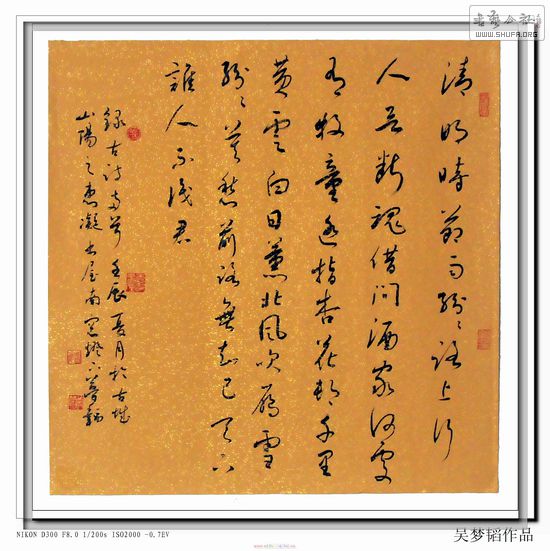 书法公社
WWW.SHUFA.ORG
清明時節雨紛〻路上行
人欲断魂借问酒家何處
有牧童遥指杏花邨千里
黄雲白日薰北風吹雁雪
紛〻莫愁前路無知己天下
誰人不識君
錄古詩两首壬辰夏月於古城
山陽之惠凝書屋南窗燈下夢韜
NIKON D300 F8.0 1/200s ISO2000 -0.7EV
吴梦韬作品